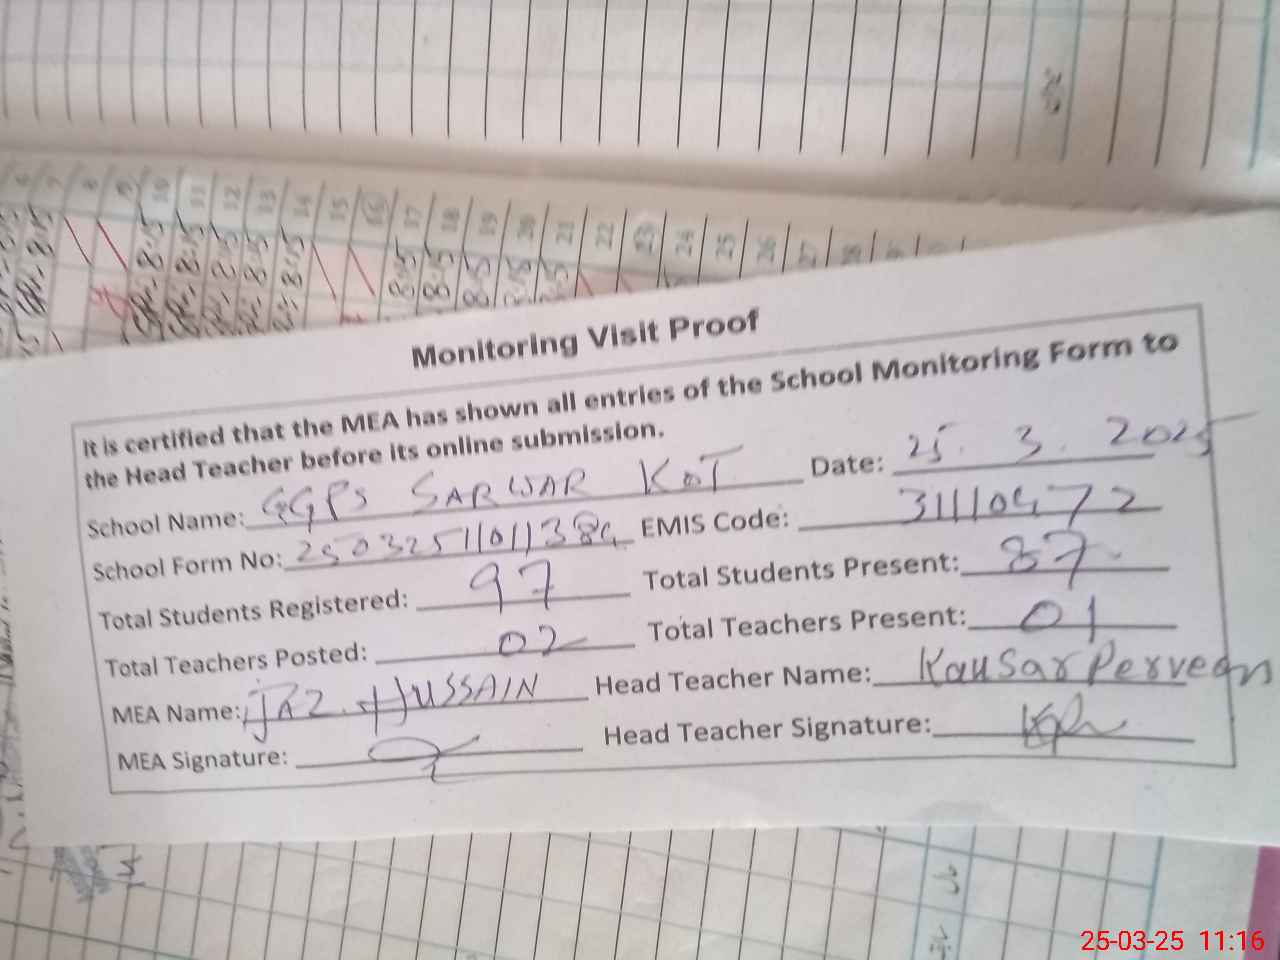 10 11 12 13 14 15 16 17 18 19 20 21 22 23 24 25 26 27
Monitoring Visit Proof
It is certified that the MEA has shown all entries of the School Monitoring Form to
the Head Teacher before its online submission.
School Name: GGPS SARWAR KOT Date: 25.3.2025
School Form No: EMIS Code: 31110472
Total Students Registered: 97 Total Students Present: 87
Total Teachers Posted: 02 Total Teachers Present: 01
MEA Name: HUSSAIN Head Teacher Name: Kausar Perveen
MEA Signature: Head Teacher Signature:
25-03-25 11:16